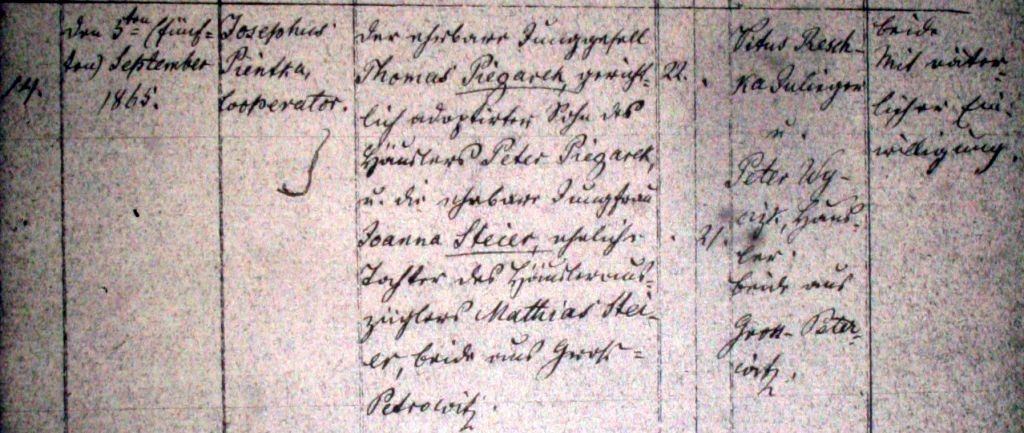 14.
den 5ten (fünf-
ten) September
1865.
Josephus
Pientka,
Cooperator.
Der ehrbare Junggesell
Thomas Piegarek, gericht-
lich adoptirter Sohn des
Häuslers Peter Piegarek,
u. die ehrbare Jungfrau
Joanna Steier, eheliche
Tochter des Häusleraus-
züglers Mathias Stei-
er, beide aus Groß-
Petrowitz.
22.
21.
Vitus Resch-
ka
u.
Peter Wy-
Häus-
ler.
beide aus
Groß-Peter-
witz.
beide
Mit väter-
licher Ein-
willigung.